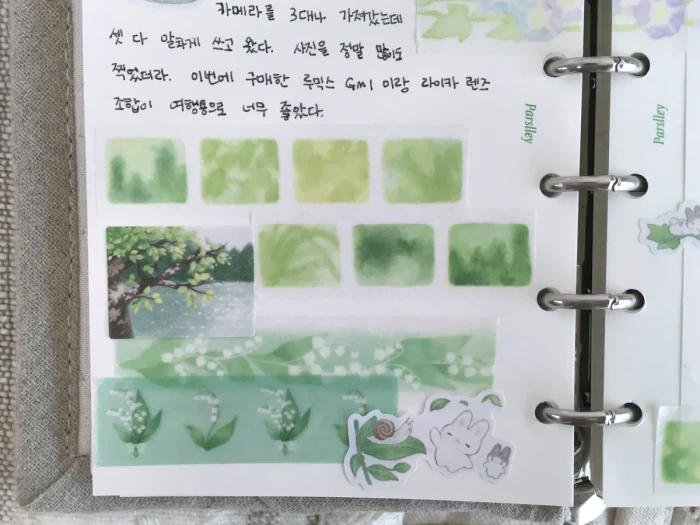 카메라를 3대나 가져갔는데
셋 다 알차게 쓰고 왔다. 사진을 정말 많이도
찍었더라. 이번에 구매한 루믹스 GM1 이랑 라이카 렌즈
조합이 여행용으로 너무 좋았다.
Parslley
Parslley